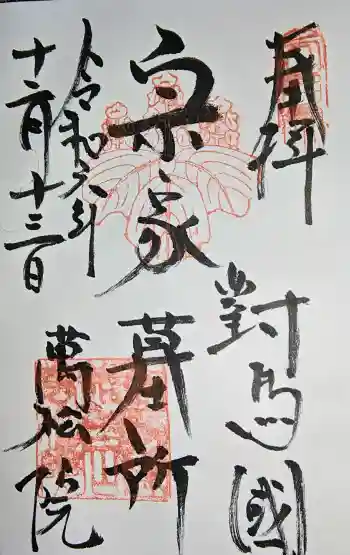 奉拝
對馬國
宗家
墓所
令和元年
十二月十三日
萬松院